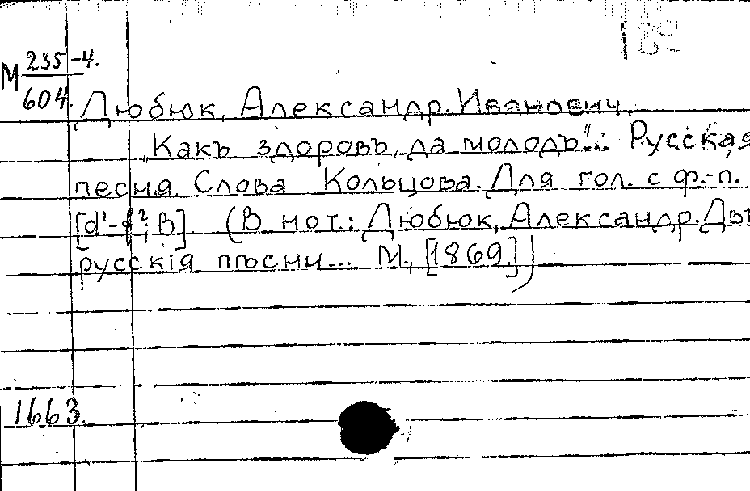 М 235-4.
604.
Дюбюк, Александр Иванович.
"Какъ здоровъ, да молодъ"... Русская
песня. Слова Кольцова. Для гол. с ф.-п.
[d¹-f²; B] (В нот.: Дюбюк, Александр. Двѣ
русскiя пѣсни... М., [1869])
1663.